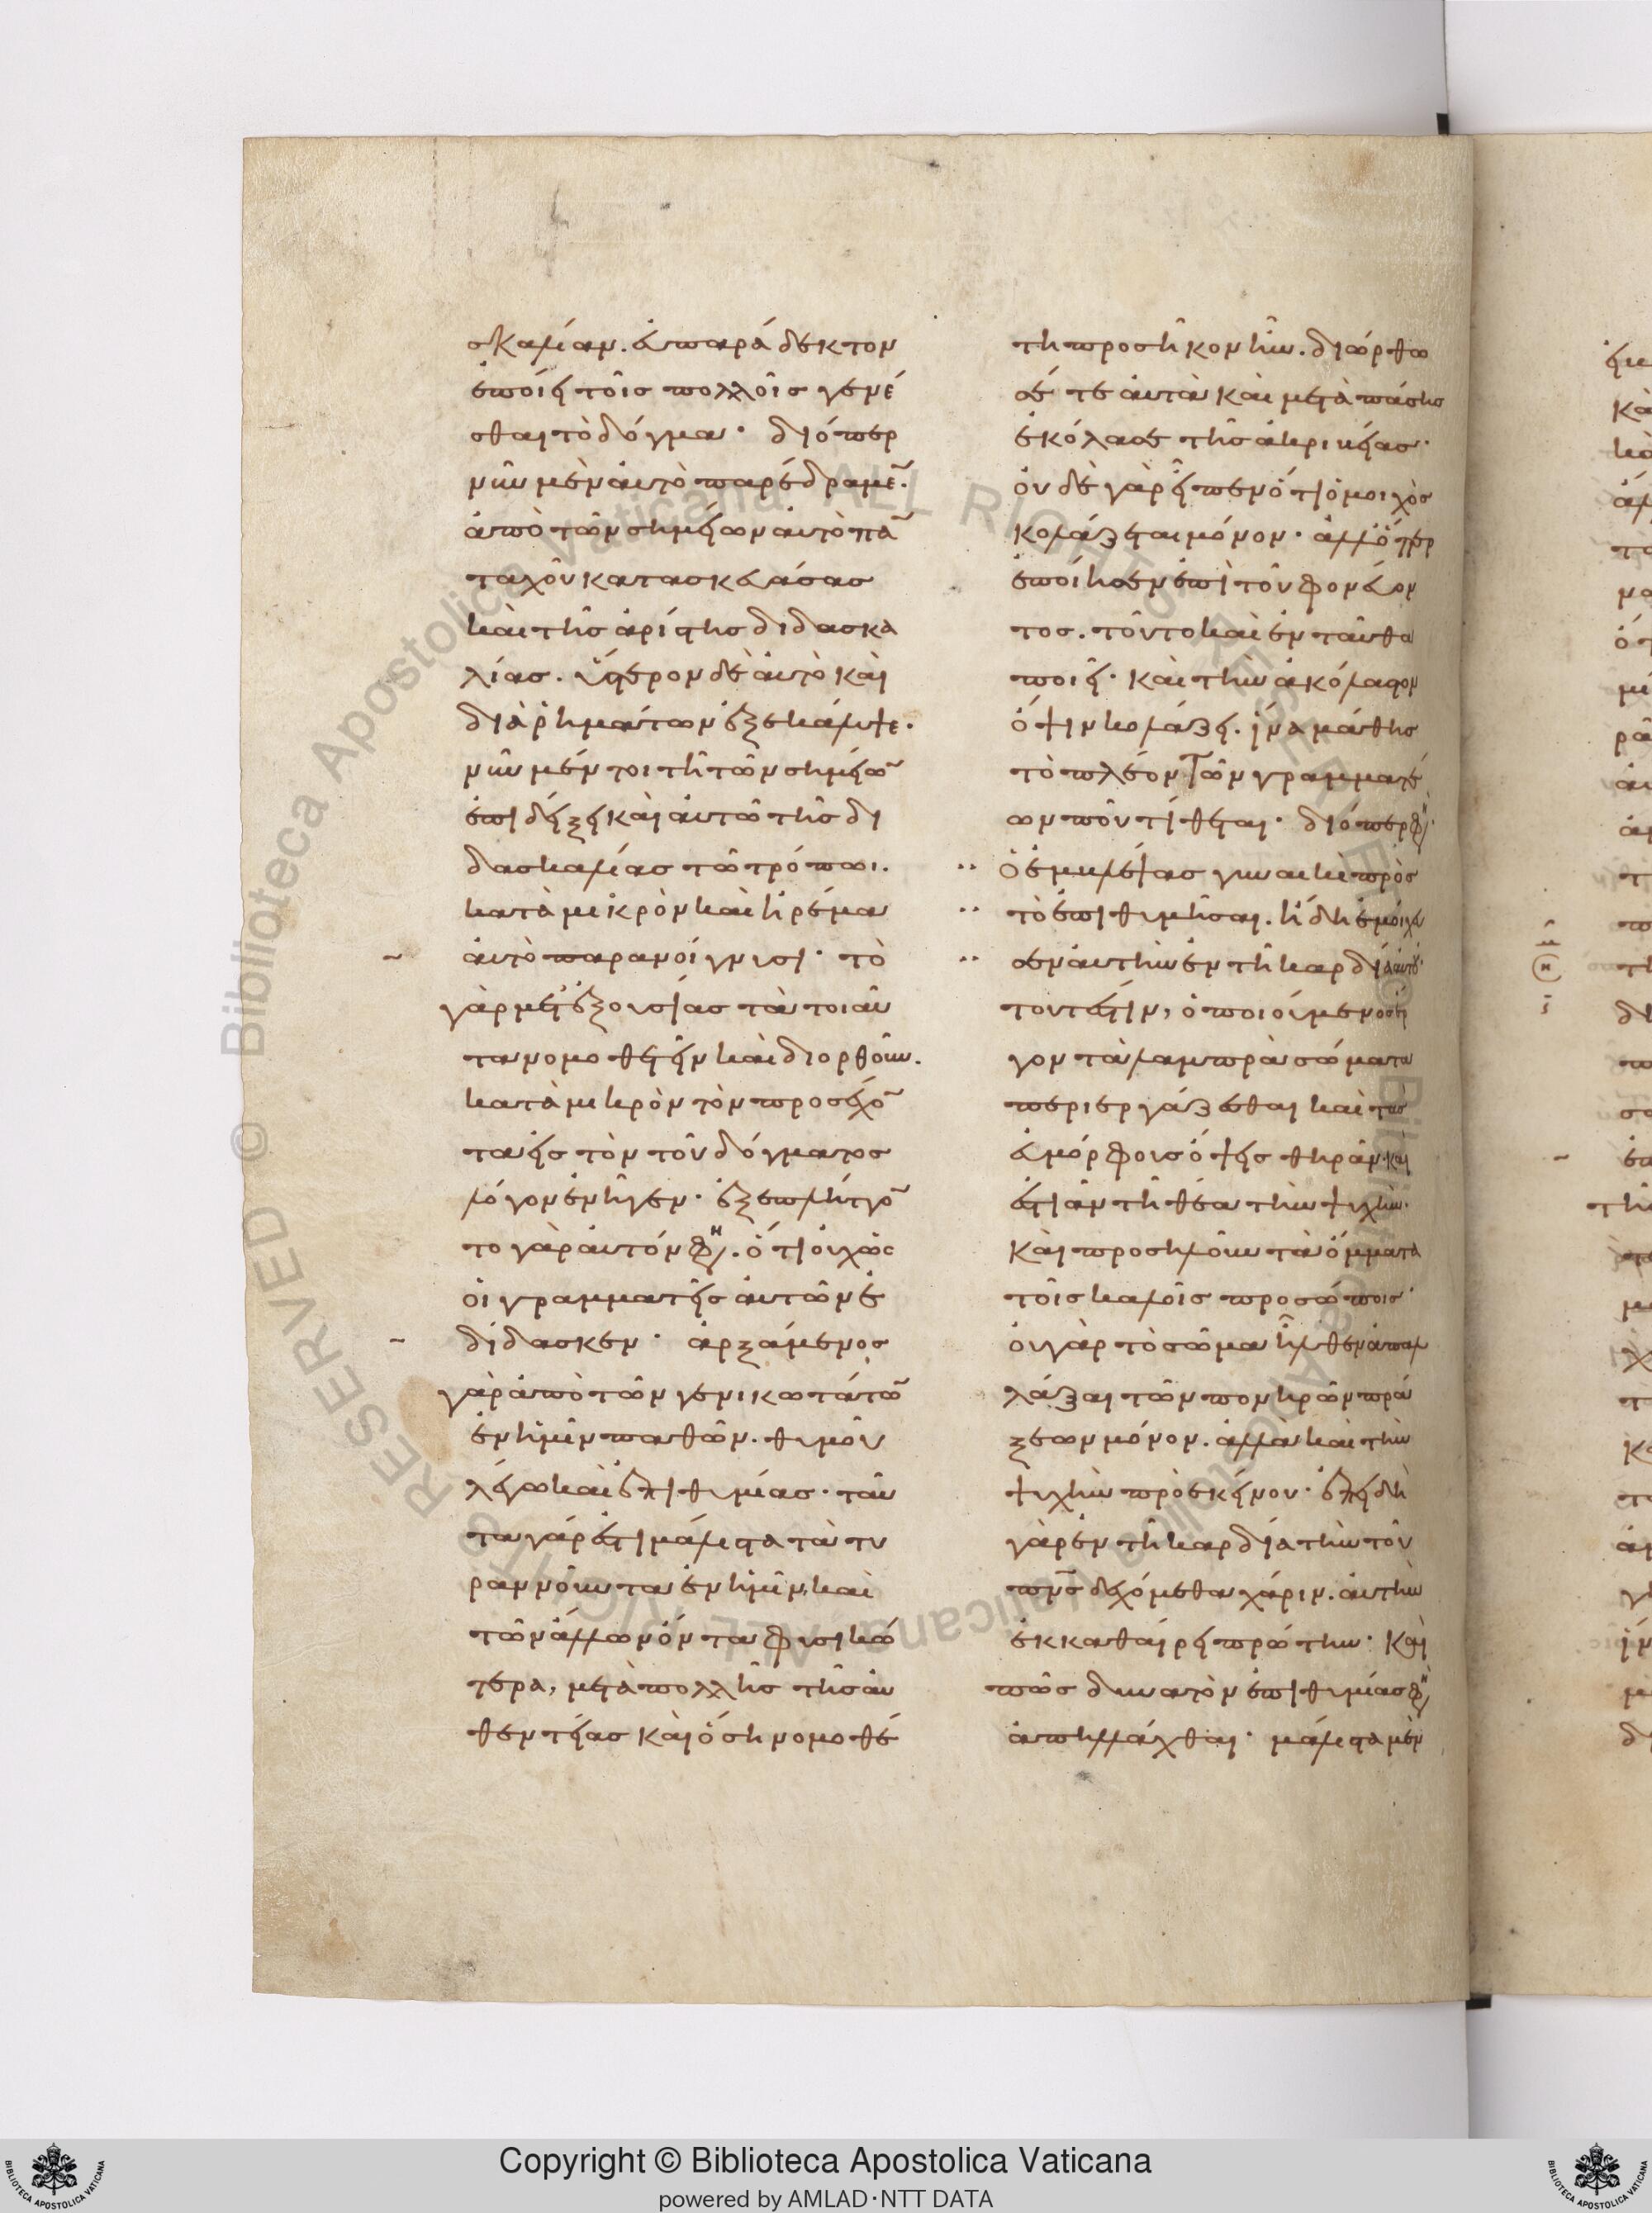 σκαλίαν. εὐπαράδεκτον
ἐποίει τοῖς πολλοῖς γενέ
σθαι τὸ δόγμα· διόπερ
νῦν μὲν αὐτὸ παρέδραμε̃.
ἀπὸ τῶν σημείων αὐτὸ πα̃
ταχοῦ κατασκευάσας
καὶ τῆς ἀρίστης διδασκα
λίας. ὕστερον δὲ αὐτὸ καὶ
διὰ ῥημάτων ἐξεκάλυψε.
νῦν μέντοι τῇ τῶν σημείω̃
ἐπιδείξει καὶ αὐτῶ τῆς δι
δασκαλίας τῶ τρόπωι.
κατὰ μικρὸν καὶ ἠρέμα
αὐτὸ παρανοίγνυσι· τὸ
γὰρ μετ' ἐξουσίας τὰ τοιαῦ
τα νομοθετεῖν καὶ διορθοῦν.
κατὰ μικρὸν τὸν προσέχο̃
τα εἰς τὸν τοῦ δόγματος
λόγον ἐνῆγεν· ἐξεπλήττο̃
το γὰρ αὐτόν φη. ὅτι οὐχ ὡς
οἱ γραμματεῖς αὐτῶν ἐ
δίδασκεν· ἀρξάμενος
γὰρ ἀπὸ τῶν γενικωτάτω̃
ἐν ἡμῖν παθῶν. θυμοῦ
λέγω καὶ ἐπιθυμίας· ταῦ
τα γάρ ἐστι μάλιστα τὰ τυ
ραννοῦντα ἐν ἡμῖν, καὶ
τῶν ἄλλων ὄντα φυσικώ
τερα, μετὰ πολλῆς τῆς αὐ
θεντείας καὶ ὅση νομοθέ
τη προσῆκον ἦν. διώρθω
σέ τε αὐτὰ καὶ μετὰ πάσης
ἐκόλασε τῆς ἀκριβείας·
οὐδὲ γὰρ εἶπεν ὅτι ὁ μοιχὸς
κολάζεται μόνον· ἀλλ' ὅπερ
ἐποίησεν ἐπὶ τοῦ φονεύον
τος. τοῦτο καὶ ἐνταῦθα
ποιεῖ· καὶ τὴν ἀκόλαστον
ὄψιν κολάζει. ἵνα μάθης
τὸ πλέον τῶν γραμματέ
ων ποῦ τίθεται· διόπερ φη·
Ὁ ἐμβλέψας γυναικὶ πρὸς
τὸ ἐπιθυμῆσαι. ἤδη ἐμοίχευ
σεν αὐτὴν ἐν τῇ καρδία αὐτοῦ·
τουτέστιν, ὁ ποιούμενος ἔρ
γον τὰ λαμπρὰ σώματα
περιεργάζεσθαι καὶ τὰς
εὐμόρφους ὄψεις θηρᾶν καὶ
ἑστιᾶν τῇ θέα τὴν ψυχήν.
καὶ προσηλοῦν τὰ ὄμματα
τοῖς καλοῖς προσώποις·
οὐ γὰρ τὸ σῶμα ἦλθεν ἀπαλ
λάξαι τῶν πονηρῶν πρά
ξεων μόνον. ἀλλὰ καὶ τὴν
ψυχὴν πρὸ ἐκείνου· ἐπειδὴ
γὰρ ἐν τῇ καρδία τὴν τοῦ
πν̅ς δεχόμεθα χάριν. αὐτὴν
ἐκκαθαίρει πρώτην· καὶ
πῶς δυνατὸν ἐπιθυμίας φη
ἀπηλλάχθαι· μάλιστα μὲν